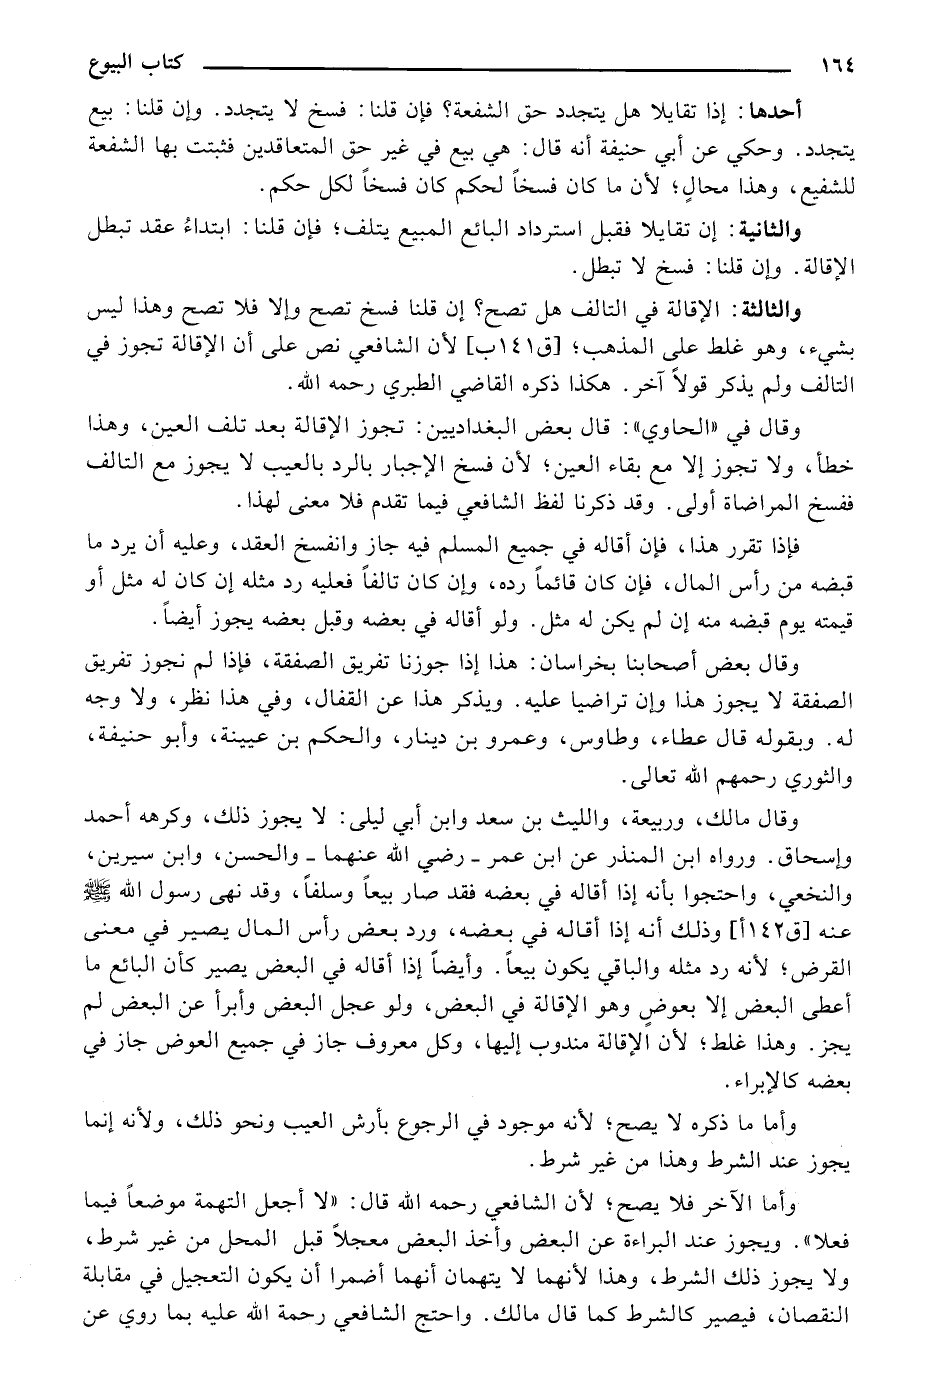 ١٦٤ كتاب البيوع
أحدها: إذا تقايلا هل يتجدد حق الشفعة؟ فإن قلنا: فسخ لا يتجدد. وإن قلنا: بيع
يتجدد. وحكي عن أبي حنيفة أنه قال: هي بيع في غير حق المتعاقدين فثبتت بها الشفعة
للشفيع، وهذا محالٍ؛ لأن ما كان فسخاً لحكم كان فسخاً لكل حكم.
والثانية: إن تقايلا فقبل استرداد البائع المبيع يتلف؛ فإن قلنا: ابتداءُ عقد تبطل
الإقالة. وإن قلنا: فسخ لا تبطل.
والثالثة: الإقالة في التالف هل تصح؟ إن قلنا فسخ تصح وإلا فلا تصح وهذا ليس
بشيء، وهو غلط على المذهب؛ [ق١٤١ب] لأن الشافعي نص على أن الإقالة تجوز في
التالف ولم يذكر قولاً آخر. هكذا ذكره القاضي الطبري رحمه الله.
وقال في «الحاوي»: قال بعض البغداديين: تجوز الإقالة بعد تلف العين، وهذا
خطأ، ولا تجوز إلا مع بقاء العين؛ لأن فسخ الإجبار بالرد بالعيب لا يجوز مع التالف
ففسخ المراضاة أولى. وقد ذكرنا لفظ الشافعي فيما تقدم فلا معنى لهذا.
فإذا تقرر هذا، فإن أقاله في جميع المسلم فيه جاز وانفسخ العقد، وعليه أن يرد ما
قبضه من رأس المال، فإن كان قائماً رده، وإن كان تالفاً فعليه رد مثله إن كان له مثل أو
قيمته يوم قبضه منه إن لم يكن له مثل. ولو أقاله في بعضه وقبل بعضه يجوز أيضاً.
وقال بعض أصحابنا بخراسان: هذا إذا جوزنا تفريق الصفقة، فإذا لم نجوز تفريق
الصفقة لا يجوز هذا وإن تراضيا عليه. ويذكر هذا عن القفال، وفي هذا نظر، ولا وجه
له. وبقوله قال عطاء، وطاوس، وعمرو بن دينار، والحكم بن عيينة، وأبو حنيفة،
والثوري رحمهم الله تعالى.
وقال مالك، وربيعة، والليث بن سعد وابن أبي ليلى: لا يجوز ذلك، وكرهه أحمد
وإسحاق. ورواه ابن المنذر عن ابن عمر ـ رضي الله عنهما ـ والحسن، وابن سيرين،
والنخعي، واحتجوا بأنه إذا أقاله في بعضه فقد صار بيعاً وسلفاً، وقد نهى رسول الله ﷺ
عنه [ق١٤٢أ] وذلك أنه إذا أقاله في بعضه، ورد بعض رأس المال يصير في معنى
القرض؛ لأنه رد مثله والباقي يكون بيعاً. وأيضاً إذا أقاله في البعض يصير كأن البائع ما
أعطى البعض إلا بعوضٍ وهو الإقالة في البعض، ولو عجل البعض وأبرأ عن البعض لم
يجز. وهذا غلط؛ لأن الإقالة مندوب إليها، وكل معروف جاز في جميع العوض جاز في
بعضه كالإبراء.
وأما ما ذكره لا يصح؛ لأنه موجود في الرجوع بأرش العيب ونحو ذلك، ولأنه إنما
يجوز عند الشرط وهذا من غير شرط.
وأما الآخر فلا يصح؛ لأن الشافعي رحمه الله قال: «لا أجعل التهمة موضعاً فيما
فعلا». ويجوز عند البراءة عن البعض وأخذ البعض معجلاً قبل المحل من غير شرط،
ولا يجوز ذلك الشرط، وهذا لأنهما لا يتهمان أنهما أضمرا أن يكون التعجيل في مقابلة
النقصان، فيصير كالشرط كما قال مالك. واحتج الشافعي رحمة الله عليه بما روي عن